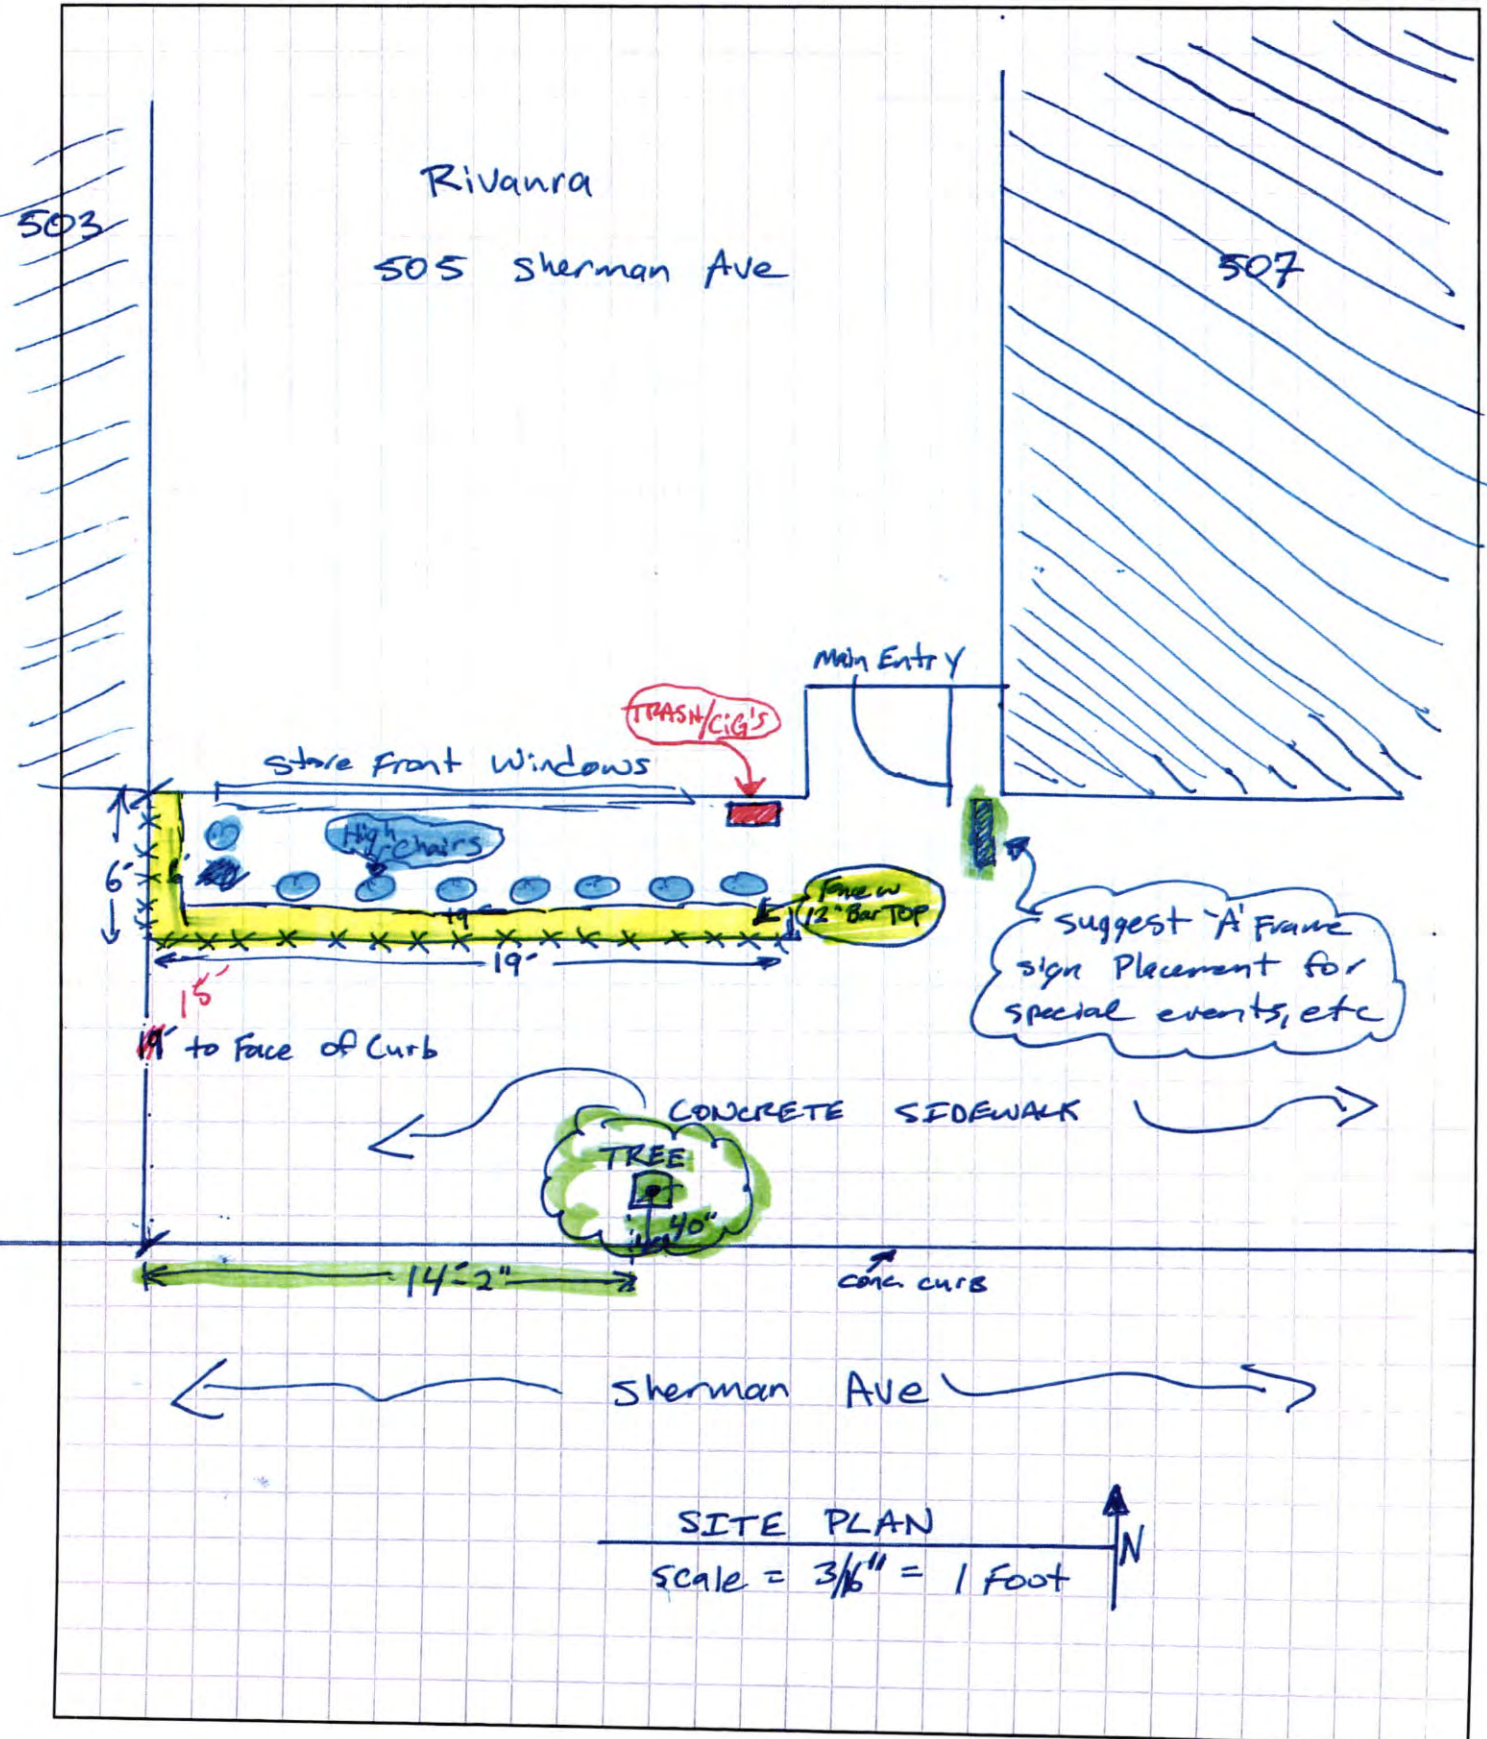 Rivanra
503
505 Sherman Ave
507
Main Entry
TRASH/CIG'S
Store Front Windows
High
Chairs
6'
6'
Fence w
12" Bar TOP
19'
19'
suggest 'A' Frame
sign Placement for
special events, etc
15'
19' to Face of Curb
CONCRETE SIDEWALK
TREE
40"
14'-2"
conc. curb
Sherman Ave
SITE PLAN
N
scale = 3/16" = 1 Foot